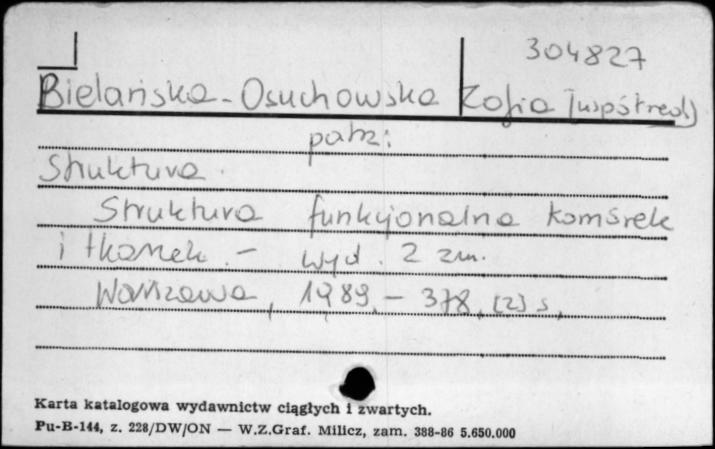 304827
Bielańska-Osuchowska Zofia [współred.]
patrz:
Struktura
Struktura funkcjonalna komórek
i tkanek. - wyd. 2 zm.
Warszawa, 1989. - 378, [2] s.
Karta katalogowa wydawnictw ciągłych i zwartych.
Pu-B-144, z. 228/DW/ON — W.Z.Graf. Milicz, zam. 388-86 5.650.000